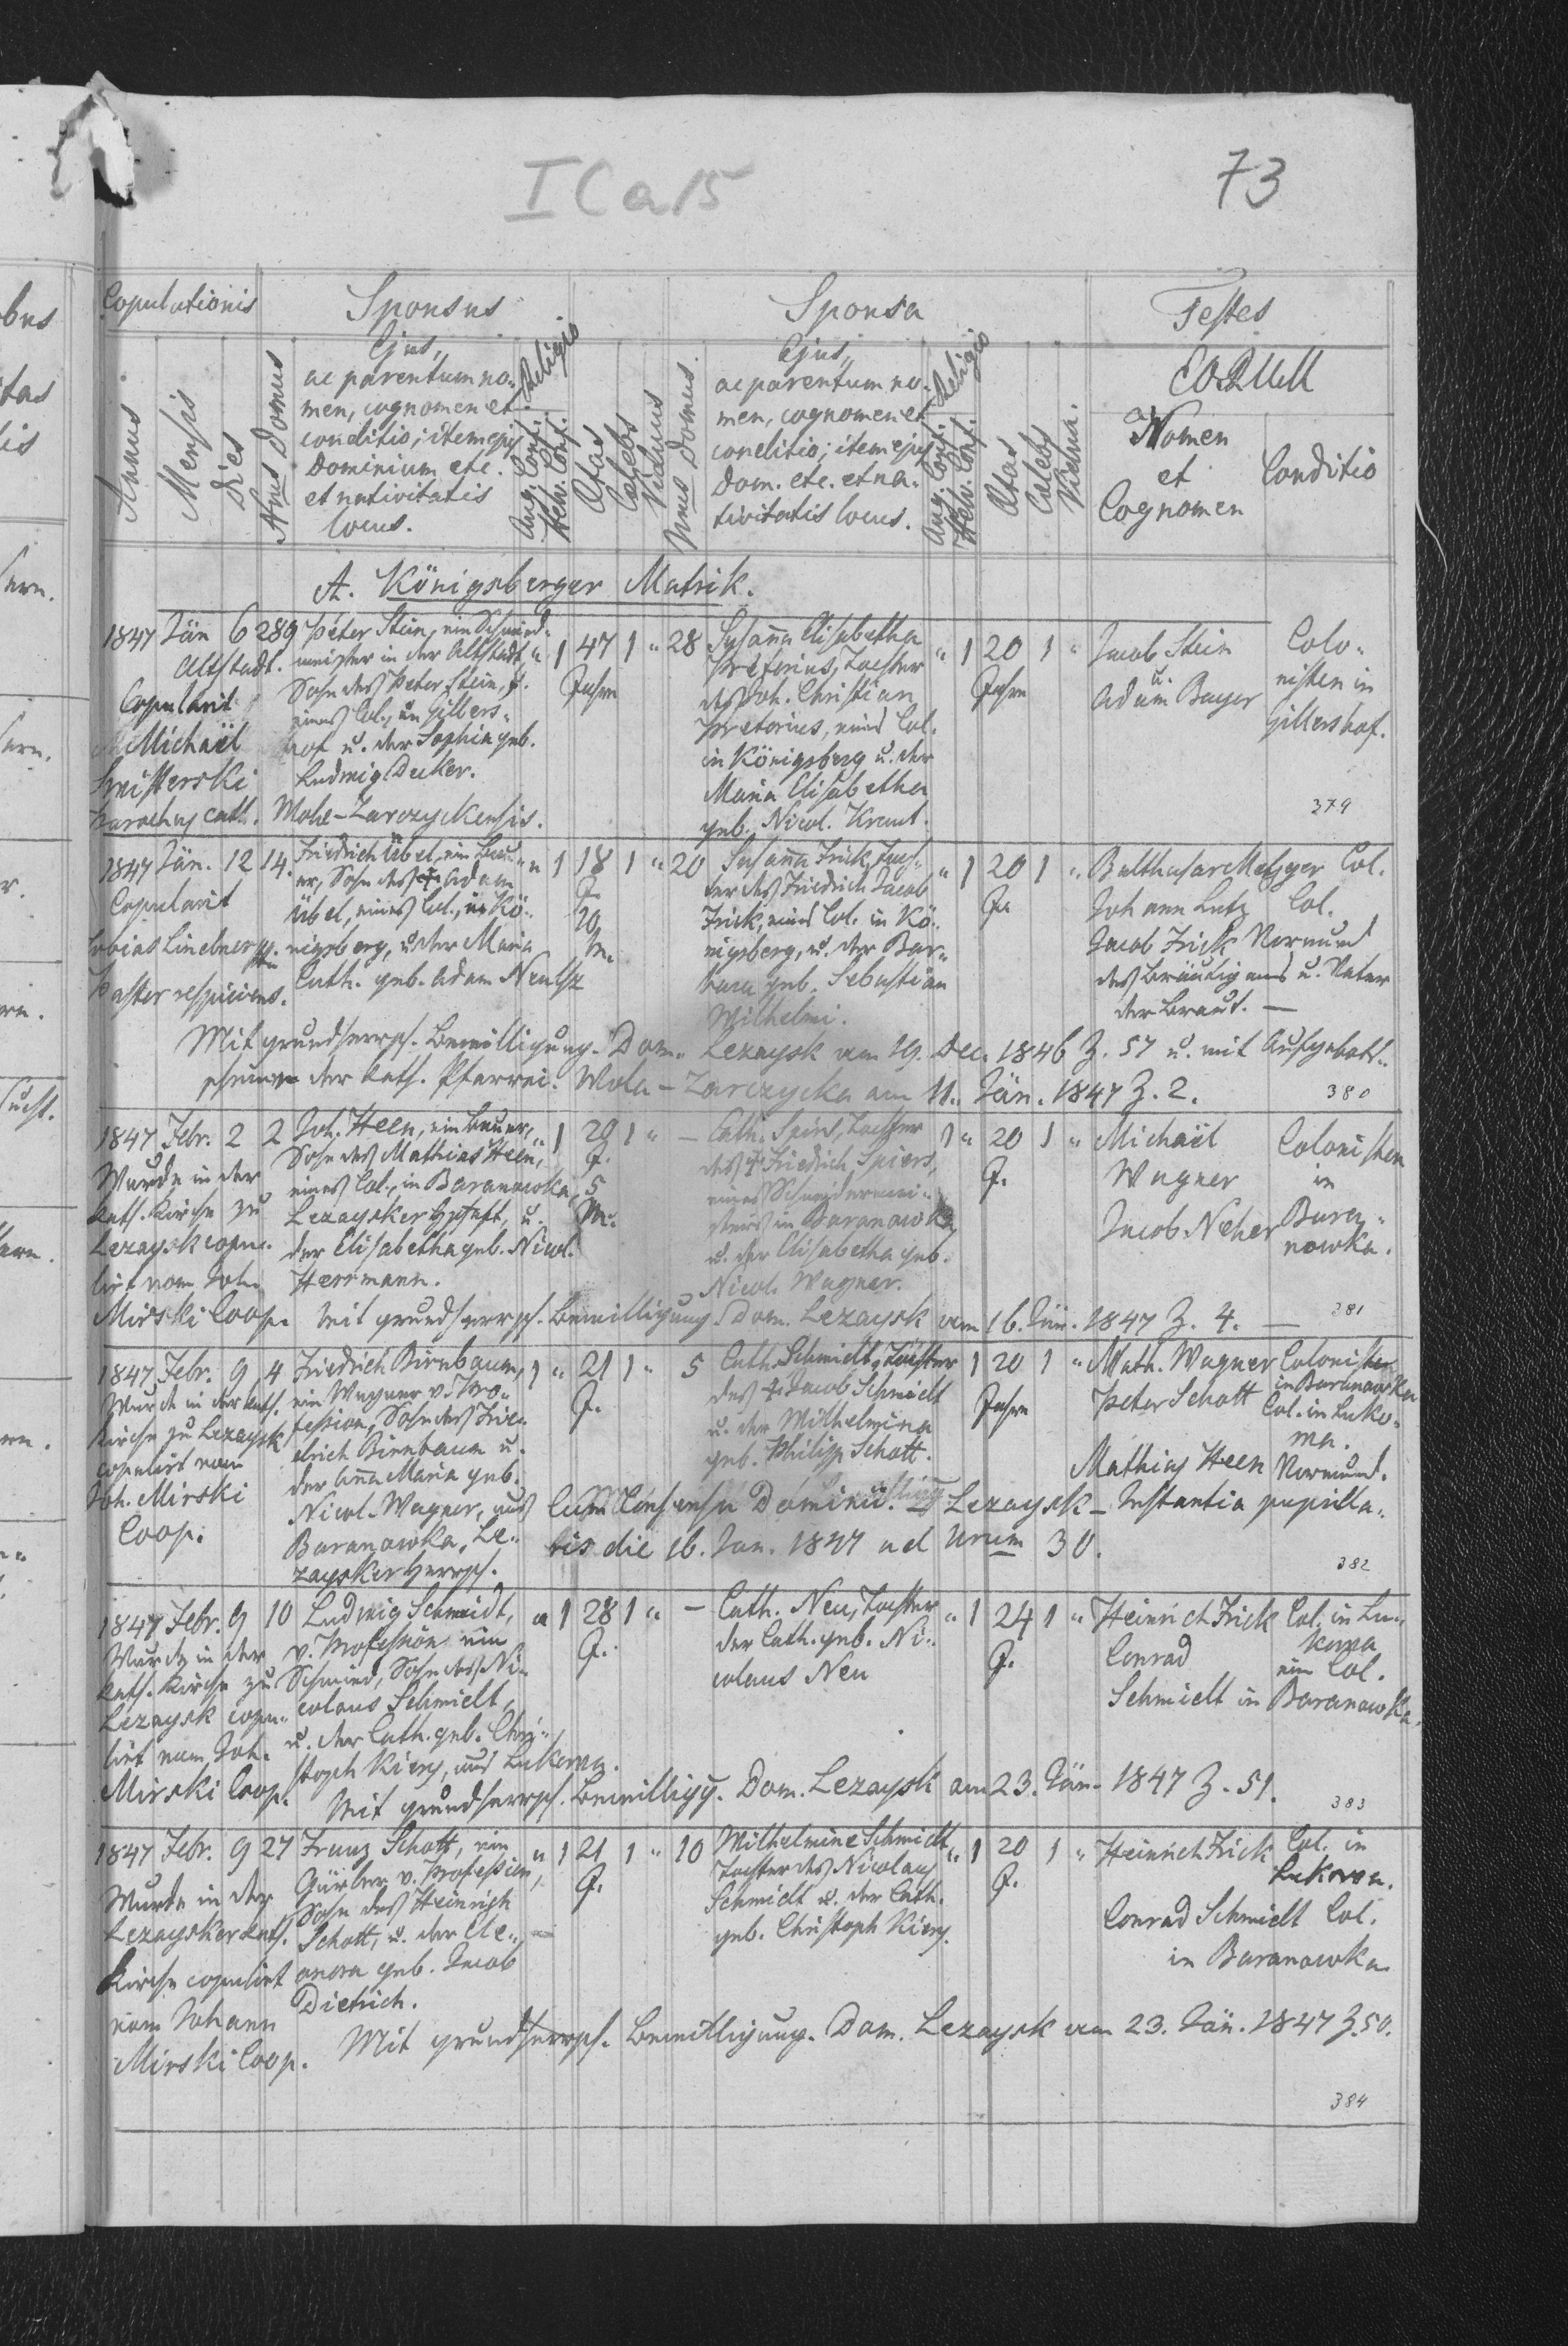 I C a 15
73
Copulationis
Annus
Mensis
Dies
Nrus Domus
Sponsus
Ejus,
ac parentum no-
men, cognomen et
conditio; item ejus
Dominium etc.
et nativitatis
locus.
Religio
Aug. Conf.
Helv. Conf.
Ætas
Cœlebs
Viduus
Nrus Domus
Sponsa
Ejus,
ac parentum no-
men, cognomen et
conditio; item ejus
Dom. etc. et na-
tivitatis locus.
Religio
Aug. Conf.
Helv. Conf.
Ætas
Cælebs
Vidua.
Testes
EORUM
Nomen
et
Cognomen
Conditio
A. Königsberger Matrik.
1847 Jän 6 289
Altstadt.
Copulavit
Michaël
parochus cath. Wole-Zarczyckensis.
Peter Stein, ein Schmied-
meister in der Altstadt,
Sohn des Peter Stein, †.
eines Col., in Gillers-
hof u. der Sophia geb.
Ludwig Decker.
" 1 47 1 " 28
Jahre
Susanna Elisabetha
Pretorius, Tochter
des Joh. Christian
Pretorius, eines Col.
in Königsberg u. der
Maria Elisabetha
geb. Nicol. Kraut.
" 1 20 1 "
Jahre
Jacob Stein
u.
Adam Bayer
Colo-
nisten in
Gillershof.
379
1847 Jän. 12 14.
Copulavit
Tobias Lindner
Pastor respiciens.
Friedrich Übel, ein Bau-
er, Sohn des † Adam
Übel, eines Col., in Kö-
nigsberg, u. der Maria
Cath. geb. Adam
" 1 18 1 " 20
J.
M.
Susanna Frick, Toch-
ter des Friedrich Jacob
Frick, eines Col. in Kö-
nigsberg, u. der Bar-
bara geb. Sebastian
Wilhelmi.
" 1 20 1 "
J.
Balthasar Metzger Col.
Johann Lutz Col.
Jacob Frick Vormund
des Bräutigams u. Vater
der Braut. —
Mit grundherrsch. Bewilligung. Dom. Lezaysk vom 19. Dec. 1846 Z. 57 u. mit Aufgebots-
schein der kath. Pfarrei. Wola-Zarczycka am 11. Jän. 1847 Z. 2.
380
1847 Febr. 2 2
Wurde in der
kath. Kirche zu
Lezaysk copu-
lirt vom Joh.
Mirski Coop.
Joh. Heen, ein Bauer,
Sohn des Mathias Heen,
eines Col., in Baranowka,
Lezaysker Hschaft, u.
der Elisabetha geb. Nicol.
Herrmann.
" 1 20 1 " —
J.
5
M.
Cath. Spiers, Tochter
des † Friedrich Spiers,
eines Schneidermei-
sters in Baranowka,
u. der Elisabetha geb.
Nicol. Wagner.
1 " 20 1 "
J.
Michaël
Wagner
Jacob Neher
Colonisten
in
Bara-
nowka.
Mit grundherrsch. Bewilligung Dom. Lezaysk vom 16. Jän. 1847 Z. 4. —
381
1847 Febr. 9 4
Wurde in der kath.
Kirche zu Lezaysk
copulirt vom
Joh. Mirski
Coop.
Friedrich Birnbaum,
ein Wagner v. Pro-
fession, Sohn des Frie-
drich Birnbaum u.
der Anna Maria geb.
Nicol. Wagner, aus
Baranowka, Le-
zaysker Herrsch.
1 " 21 1 " 5
J.
Cath. Schmidt, Tochter
des † Jacob Schmidt
u. der Wilhelmina
geb. Philipp Schott.
1 20 1 "
Jahre
Math. Wagner Colonisten
in Baranowka
Peter Schott Col. in Luko-
wa.
Mathias Heen Vormund.
Cum Consensu Dominii Lezaysk - Instantia pupilla-
ris die 16. Jan. 1847 ad Nrum 30.
382
1847 Febr. 9 10
Wurde in der
kath. Kirche zu
Lezaysk copu-
lirt vom Joh.
Mirski Coop.
Ludwig Schmidt,
v. Profession ein
Schmied, Sohn des Ni-
colaus Schmidt,
u. der Cath. geb. Chri-
stoph Kiery, aus Lukowa.
" 1 28 1 " —
J.
Cath. Neu, Tochter
der Cath. geb. Ni-
colaus Neu
" 1 24 1 "
J.
Heinrich Frick
Conrad
Schmidt
Col. in Lu-
kowa
ein Col.
in Baranowka.
Mit grundherrsch. Bewilligg. Dom. Lezaysk am 23. Jän. 1847 Z. 51.
383
1847 Febr. 9 27
Wurde in der
Lezaysker kath.
Kirche copulirt
vom Johann
Mirski Coop.
Franz Schott, ein
Gärber v. Profession,
Sohn des Heinrich
Schott, u. der Ele-
anora geb. Jacob
Dietrich.
" 1 21 1 " 10
J.
Wilhelmine Schmidt,
Tochter des Nicolaus
Schmidt u. der Cath.
geb. Christoph Kiery.
" 1 20 1 "
J.
Heinrich Frick Col. in
Lukowa.
Conrad Schmidt Col.
in Baranowka
Mit grundherrsch. Bewilligung. Dom. Lezaysk vom 23. Jän. 1847 Z. 50.
384